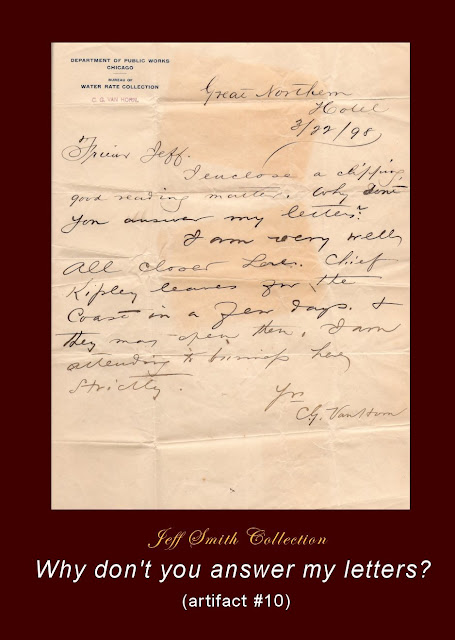 DEPARTMENT OF PUBLIC WORKS
CHICAGO
BUREAU OF
WATER RATE COLLECTION
C. G. VAN HORN,
Great Northern
Hotel
3/22/98
Friend Jeff.
I enclose a clipping,
good reading matter. Why dont
you answer my letters?
I am very well,
all closed here. Chief
Kipley leaves for the
Coast in a few days. &
they may open then. I am
attending to business here
strictly.
Yrs
C.G. Van Horn
Jeff Smith Collection
Why don't you answer my letters?
(artifact #10)